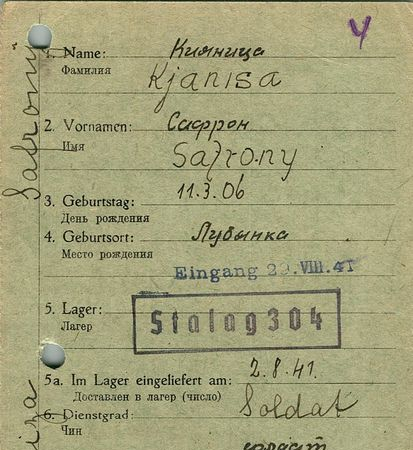 У
1. Name: Кияница
Фамилия
Kjanisa
2. Vornamen: Сафрон
Имя
Safrony
Safrony
3. Geburtstag: 11.3.06
День рождения
4. Geburtsort: Лубынка
Место рождения
Eingang 29.VIII.41
5. Lager: Stalag 304
Лагер
5a. Im Lager eingeliefert am: 2.8.41.
Доставлен в лагер (число)
6. Dienstgrad: Soldat
Чин
солдат